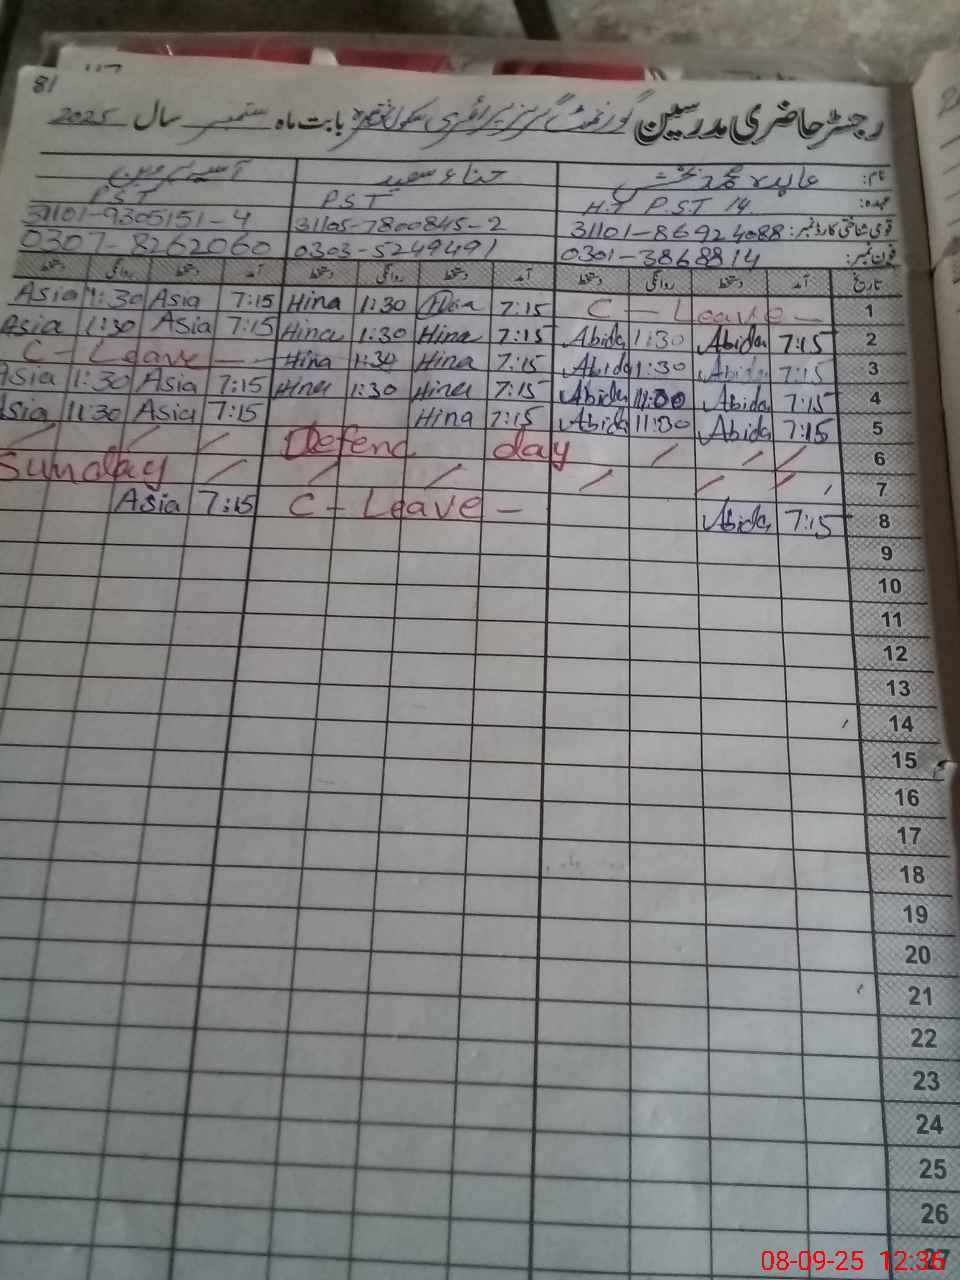 81
رجسٹر حاضری مدرسین گورنمنٹ گرلز پرائمری سکول بابت ماہ ستمبر سال 2025
نام: عابدہ حناء سعید آسیہ
عہدہ: H.T P.S.T 14 P.S.T P.S.T
قومی شناختی کارڈ نمبر: 31101-86924088 31105-7800845-2 31101-9305151-4
فون نمبر: 0301-3868814 0303-5249491 0307-8262060
تاریخ آمد دستخط روانگی دستخط آمد دستخط روانگی دستخط آمد دستخط روانگی دستخط
Asia 1:30 Asia 7:15 Hina 1:30 Hina 7:15 C - Leave - 1
Asia 1:30 Asia 7:15 Hina 1:30 Hina 7:15 Abida 1:30 Abida 7:15 2
C - Leave - Hina 1:30 Hina 7:15 Abida 1:30 Abida 7:15 3
Asia 1:30 Asia 7:15 Hina 1:30 Hina 7:15 Abida 11:00 Abida 7:15 4
Asia 11:30 Asia 7:15 Hina 7:15 Abida 11:30 Abida 7:15 5
Defend day 6
Sunday 7
Asia 7:15 C - Leave - Abida 7:15 8
9
10
11
12
13
14
15
16
17
18
19
20
21
22
23
24
25
26
27
08-09-25 12:36